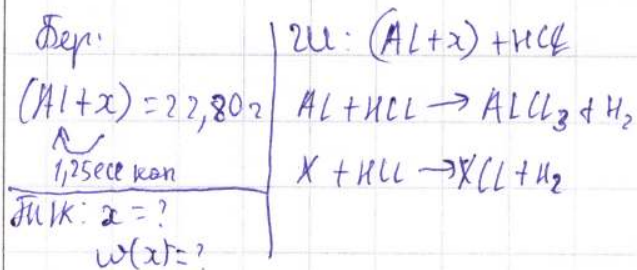 Бер:
(Al+x) = 22,80г
1,25есе көп
Т/К: x = ?
ω(x)=?
(Al+x) + HCl
Al + HCl → AlCl₃ + H₂
X + HCl → XCl + H₂